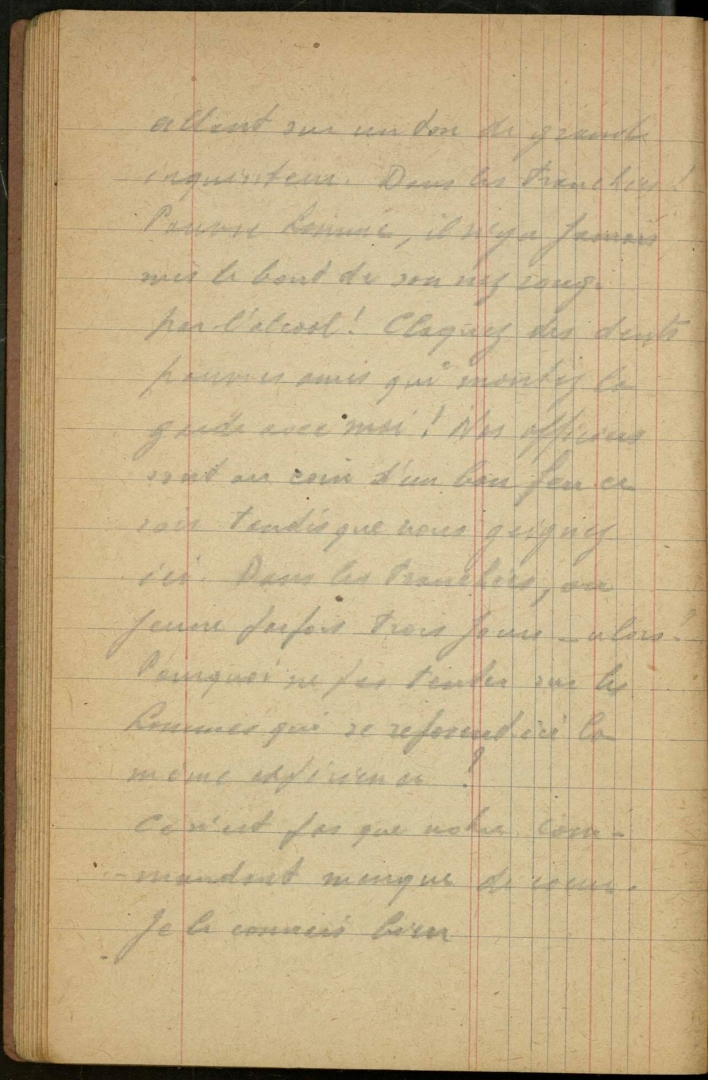 allant sur un ton de grand
inquisiteur. Dans les tranchées !
Pauvre homme, il n'y a jamais
mis le bout de son nez rougi
par l'alcool ! Claquez des dents
pauvres amis qui montez la
garde avec moi ! Nos officiers
sont au coin d'un bon feu ce
soir tandis que vous geignez
ici. Dans les tranchées, on
jeune parfois trois jours _ alors !
Pourquoi ne pas tenter sur les
hommes qui se reposent ici la
même expérience ?
Ce n'est pas que notre com-
mandant manque de coeur.
Je le connais bien